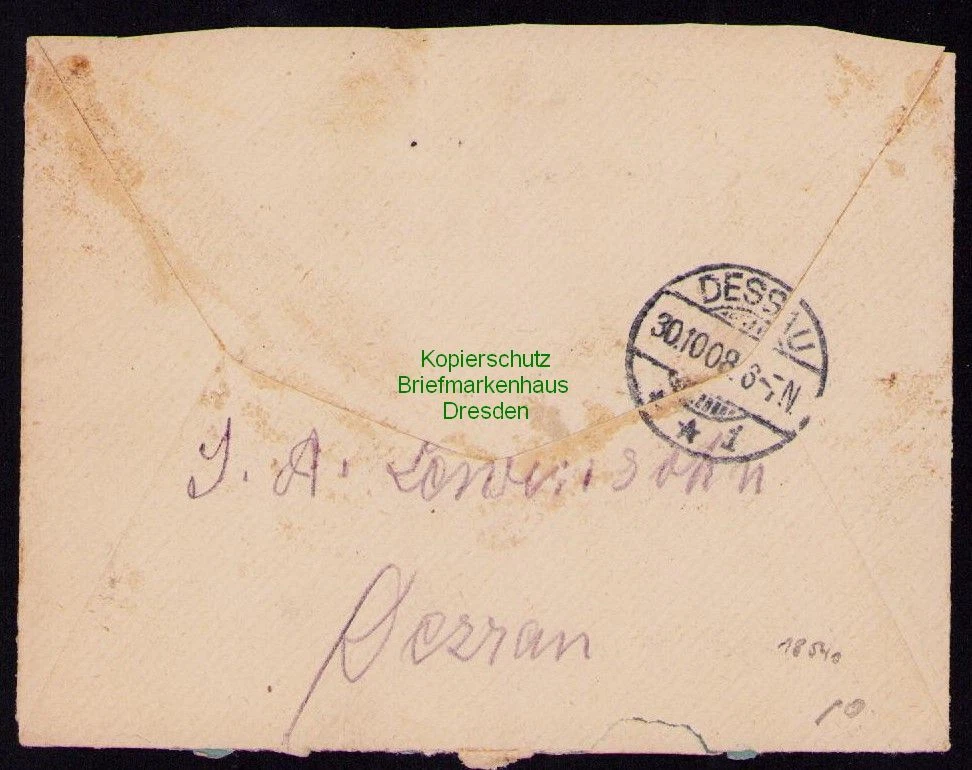 DESSAU
30.10.08. 6-7 N.
* 1
Kopierschutz
Briefmarkenhaus
Dresden
J. A. Löwinsohn
18540
10